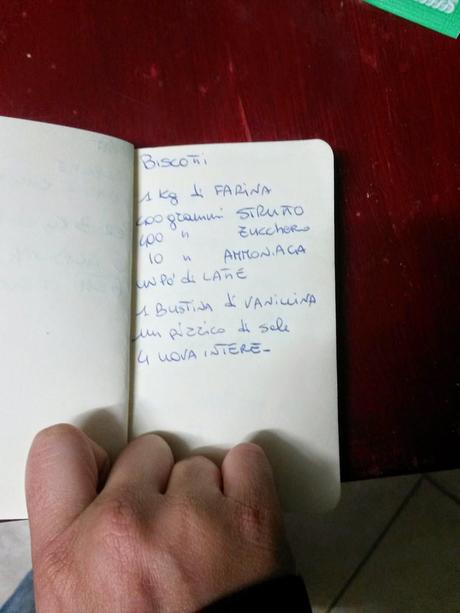 BISCOTTI
1 Kg di FARINA
400 grammi STRUTTO
400 " Zucchero
10 " AMMONIACA
UN PO' di LATTE
1 BUSTINA di VANILLINA
un pizzico di sale
4 UOVA INTERE-